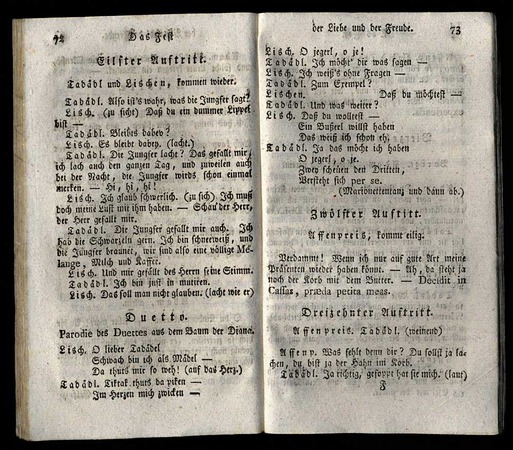 72 Das Fest
Eilfter Auftritt.
Tadädl und Lischen, kommen wieder.
Tadädl. Also ist's wahr, was die Jungfer sagt?
Lisch. (zu sich) Daß du ein dummer Lippel
bist —
Tadädl. Bleibts dabey?
Lisch. Es bleibt dabey. (lacht.)
Tadädl. Die Jungfer lacht? Das gefallt mir,
ich lach auch den ganzen Tag, und zuweilen auch
bey der Nacht, die Jungfer wirds schon einmal
merken. — Hi, hi, hi!
Lisch. Ich glaub schwerlich. (zu sich) Ich muß
doch meine Lust mit ihm haben. — Schau der Herr,
der Herr gefallt mir.
Tadädl. Die Jungfer gefallt mir auch. Ich
hab die Schwarzeln gern. Ich bin schneeweiß, und
die Jungfer braunet, wir sind also eine völlige Me-
lange, Milch und Kaffee.
Lisch. Und mir gefallt des Herrn seine Stimm.
Tadädl. Ich bin just in mutiren.
Lisch. Das soll man nicht glauben. (lacht wie er)
Duetto.
Parodie des Duettes aus dem Baum der Diana.
Lisch. O lieber Tadädel
Schwach bin ich als Mädel —
Da thurs mir so weh! (auf das Herz.)
Tadädl. Tiktak thurs da piken —
Im Herzen mich zwicken —
der Liebe und der Freude. 73
Lisch. O jegerl, o je!
Tadädl. Ich möcht' dir was sagen —
Lisch. Ich weiß's ohne Fragen —
Tadädl. Zum Exempel?
Lischen. Daß du möchtest —
Tadädl. Und was weiter?
Lisch. Daß du wolltest —
Ein Busserl willst haben
Das weiß ich schon eh.
Tadädl. Ja das möcht ich haben
O jegerl, o je.
Zwey scheuen den Dritten,
Versteht sich per se.
(Marionettenmäßig und dann ab.)
Zwölfter Auftritt.
Affenpreis, kommt eilig.
Verdammt! Wenn ich nur auf gute Art meine
Präsenten wieder haben könnt. — Ah, da steht ja
noch der Korb mit dem Butter. — Decidit in
Cassas, præda petita meas.
Dreizehnter Auftritt.
Affenpreis. Tadädl. (weinend)
Affenp. Was fehlt denn dir? Du sollst ja la-
chen, du bist ja der Hahn im Korb.
Tadädl. Ja richtig, gefoppt hat sie mich. (laut)